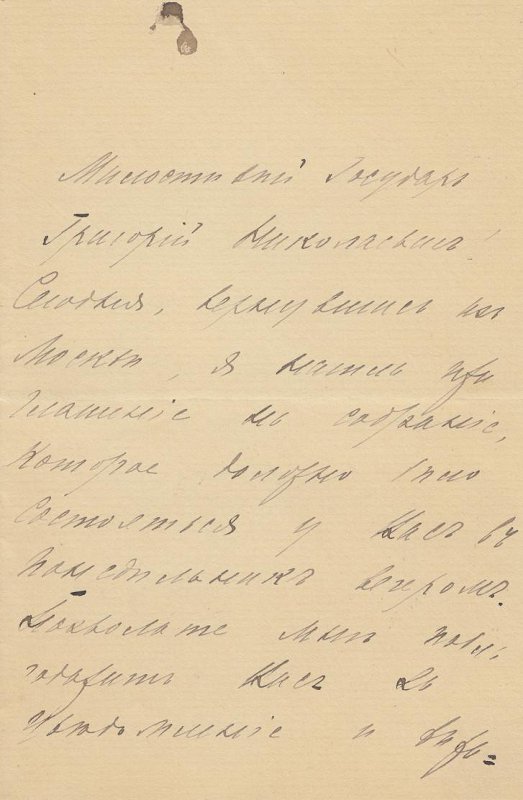 Милостивый Государь
Григорій Николаевичъ!
Сегодня, вернувшись изъ
Москвы, я нашелъ при
глашеніе на собраніе,
которое должно было
состояться у Васъ въ
понедѣльникъ вечеромъ.
Позвольте мнѣ побла
годарить Васъ за
приглашеніе и